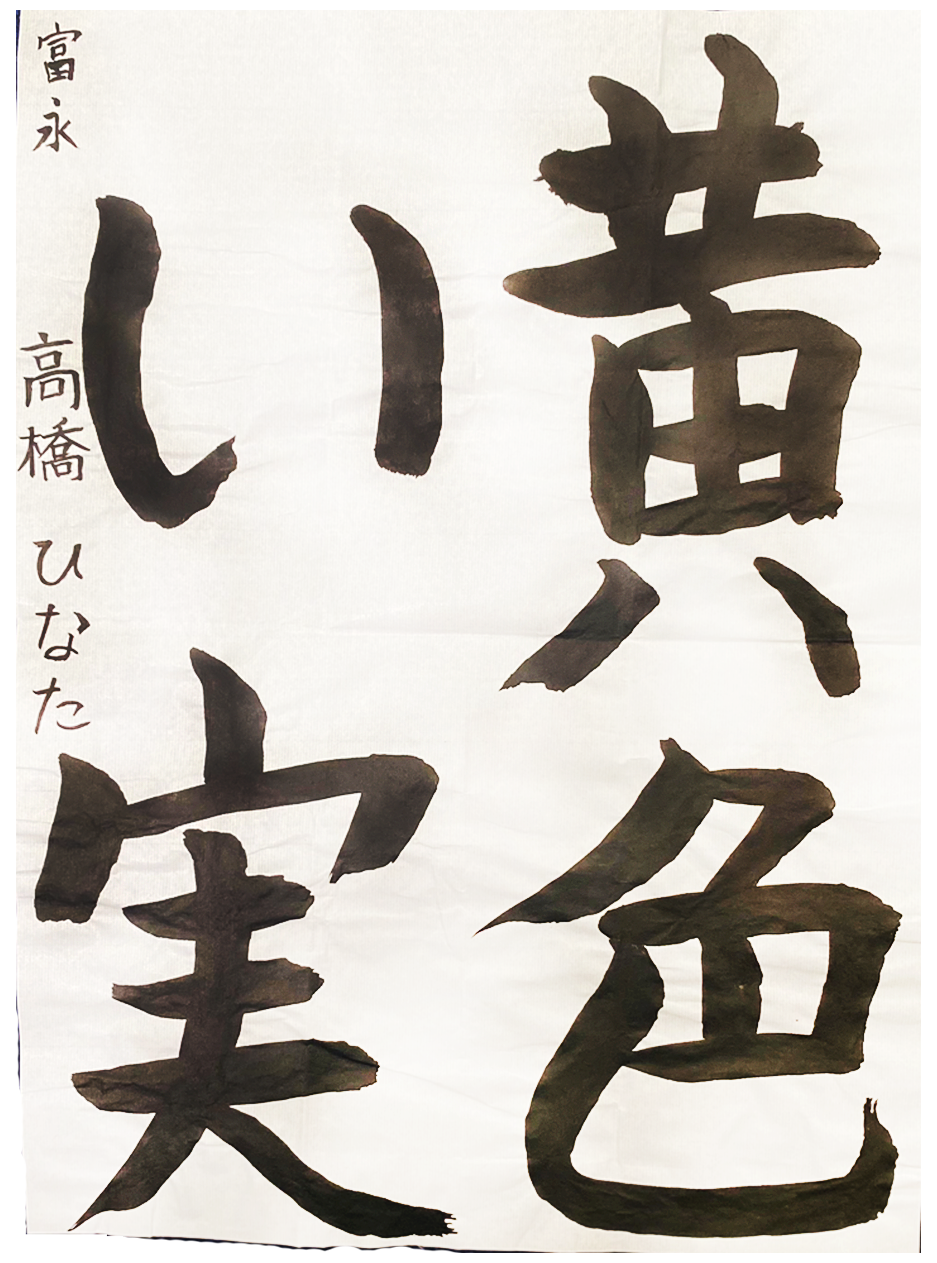 黄色
い実
富永 高橋ひなた